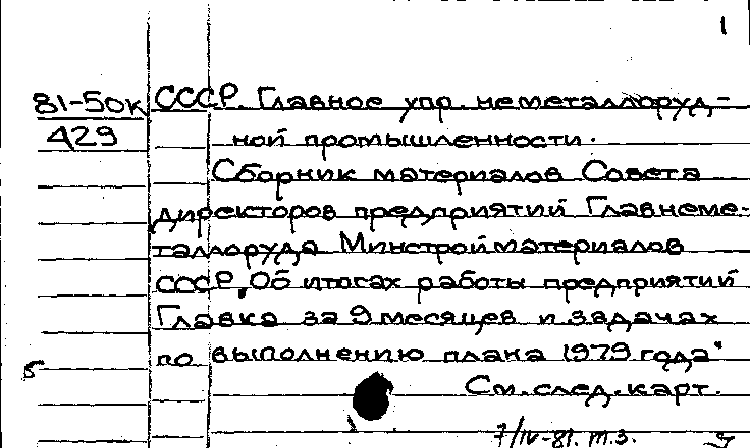 1
81-50К СССР. Главное упр. неметаллоруд-
429 ной промышленности.
Сборник материалов Совета
директоров предприятий Главнеме-
таллоруда Минстройматериалов
СССР „Об итогах работы предприятий
Главка за 9 месяцев и задачах
по выполнению плана 1979 года"
5
См. след. карт.
7/IV-81. т.з.